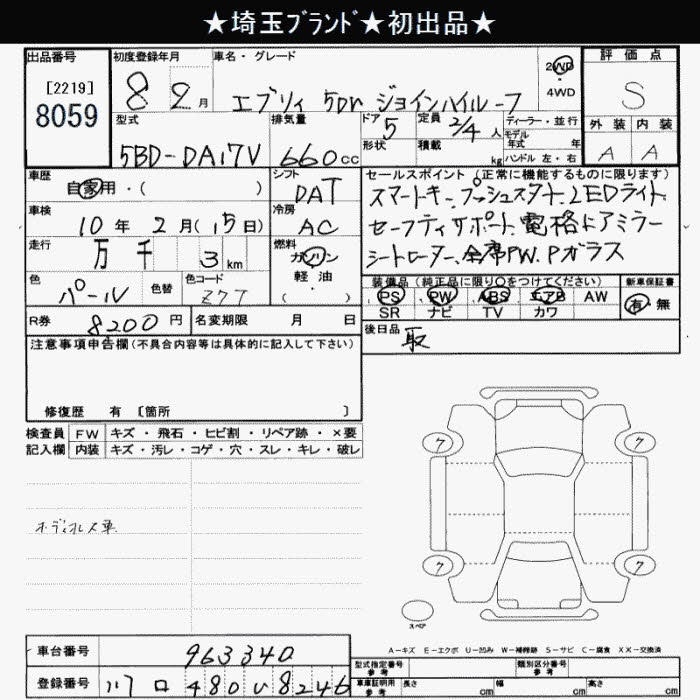 ★埼玉ﾌﾞﾗﾝﾄﾞ★初出品★
出品番号 初度登録年月 車名・グレード 評価点
[2219] 8 2月 エブリィ 5DR ジョインハイルーフ 2WD・4WD S
8059
型式 排気量 ドア 定員 ディーラー・並行 外装 内装
5BD-DA17V 660cc 5 2/4人 モデル年式 年式 A A
形状 積載 kg ハンドル 左・右
車歴 自家用・( ) シフト DAT
セールスポイント(正常に機能するものに限ります)
スマートキー、プッシュスタート、LEDライト
車検 10年2月(15日) 冷房 AC
セーフティサポート、電格ドアミラー
走行 万 千 3km 燃料 ガソリン
軽・油
( )
シートヒーター、全席PW、Pガラス
色 パール 色替 色コード Z7T
装備品(純正品に限り○をつけてください) 新車保証書
PS PW ABS エアB AW 有・無
SR ナビ TV カワ
R券 8200円 名変期限 月 日
後日品 取
注意事項申告欄(不具合内容等は具体的に記入して下さい)
修復歴 有 [箇所 ]
検査員 FW キズ・飛石・ヒビ割・リペア跡・×要
記入欄 内装 キズ・汚レ・コゲ・穴・スレ・キレ・破レ
ボディオレス車
7 7
7 7
スペア
A－キズ E－エクボ U－凹み W－補修跡 S－サビ C－腐食 XX－交換済
車台番号 963340
型式指定番号 参考 類別区分番号 参考
登録番号 480 8246
車庫証明用 参考 長さ cm 幅 cm 高さ cm